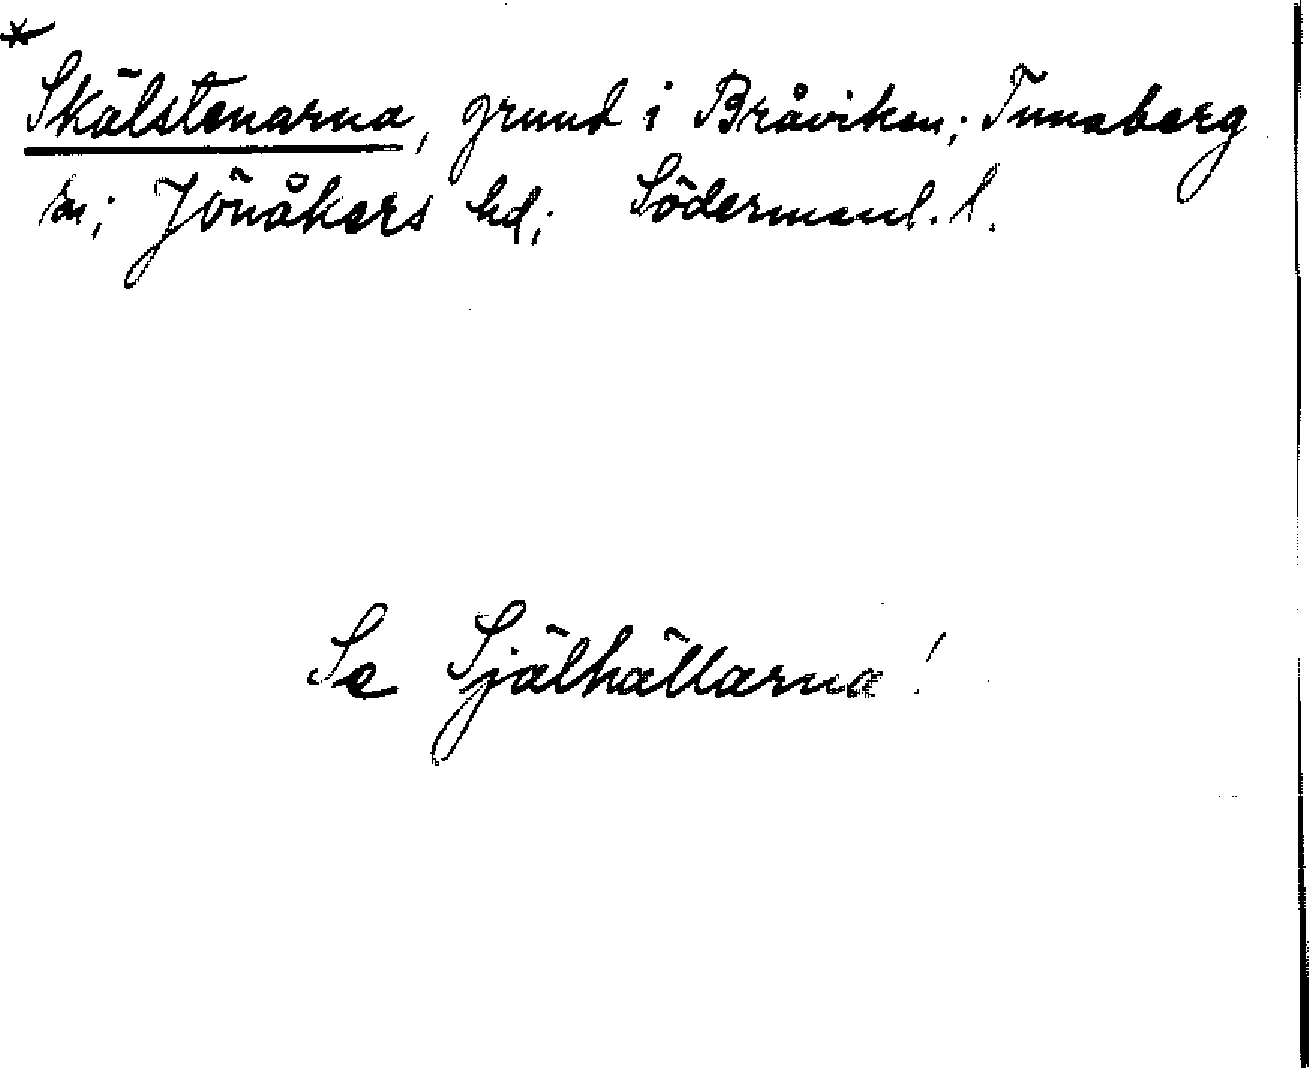 *
Skälstenarna, grund i Bråviken; Tunaberg
sn; Jönåkers hd; Södermanl. l.
Se Själhällarna!